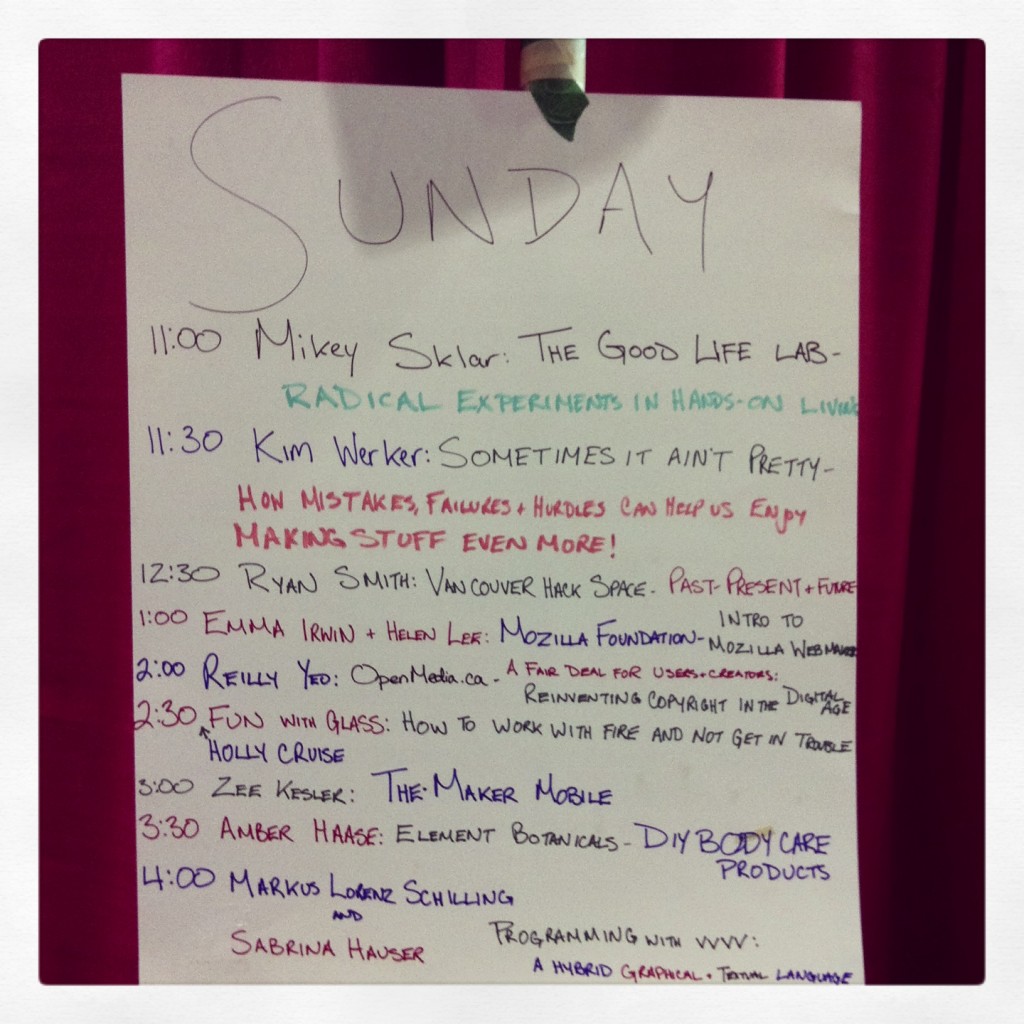 SUNDAY
11:00 Mikey Sklar: THE GOOD LIFE LAB -
RADICAL EXPERIMENTS IN HANDS-ON LIVING
11:30 Kim Werker: SOMETIMES IT AIN'T PRETTY -
HOW MISTAKES, FAILURES + HURDLES CAN HELP US ENJOY
MAKING STUFF EVEN MORE!
12:30 RYAN SMITH: VANCOUVER HACK SPACE - PAST-PRESENT + FUTURE
1:00 EMMA IRWIN + HELEN LEE: MOZILLA FOUNDATION - INTRO TO
MOZILLA WEBMAKER
2:00 REILLY YEO: OpenMedia.ca - A FAIR DEAL FOR USERS + CREATORS:
REINVENTING COPYRIGHT IN THE DIGITAL
AGE
2:30 FUN WITH GLASS: HOW TO WORK WITH FIRE AND NOT GET IN TROUBLE
HOLLY CRUISE
3:00 ZEE KESLER: THE MAKER MOBILE
3:30 AMBER HAASE: ELEMENT BOTANICALS - DIY BODY CARE
PRODUCTS
4:00 MARKUS LORENZ SCHILLING
AND
SABRINA HAUSER PROGRAMMING WITH VVVV:
A HYBRID GRAPHICAL + TEXTUAL LANGUAGE